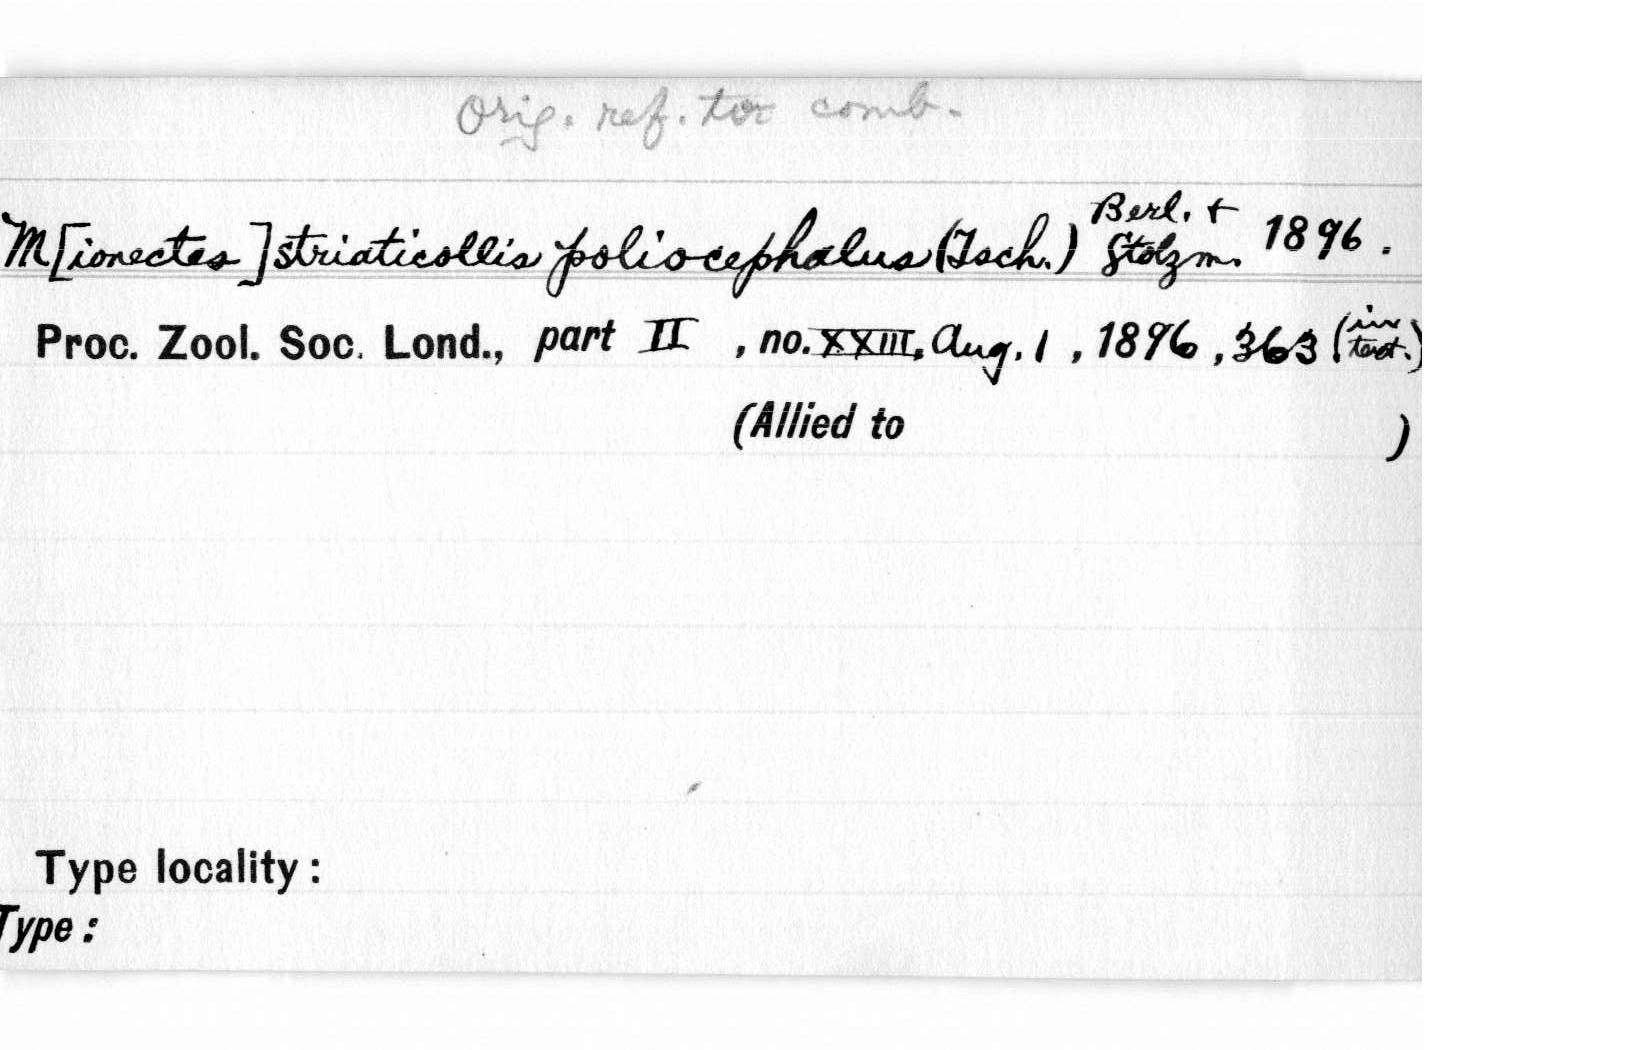 Orig. ref. for comb.
M[ionectes] striaticollis poliocephalus (Tsch.) Berl. + Stolzm. 1896.
Proc. Zool. Soc. Lond., part II , no. XXIII, Aug. 1 , 1896 , 363 (in text.)
(Allied to )
Type locality :
Type :